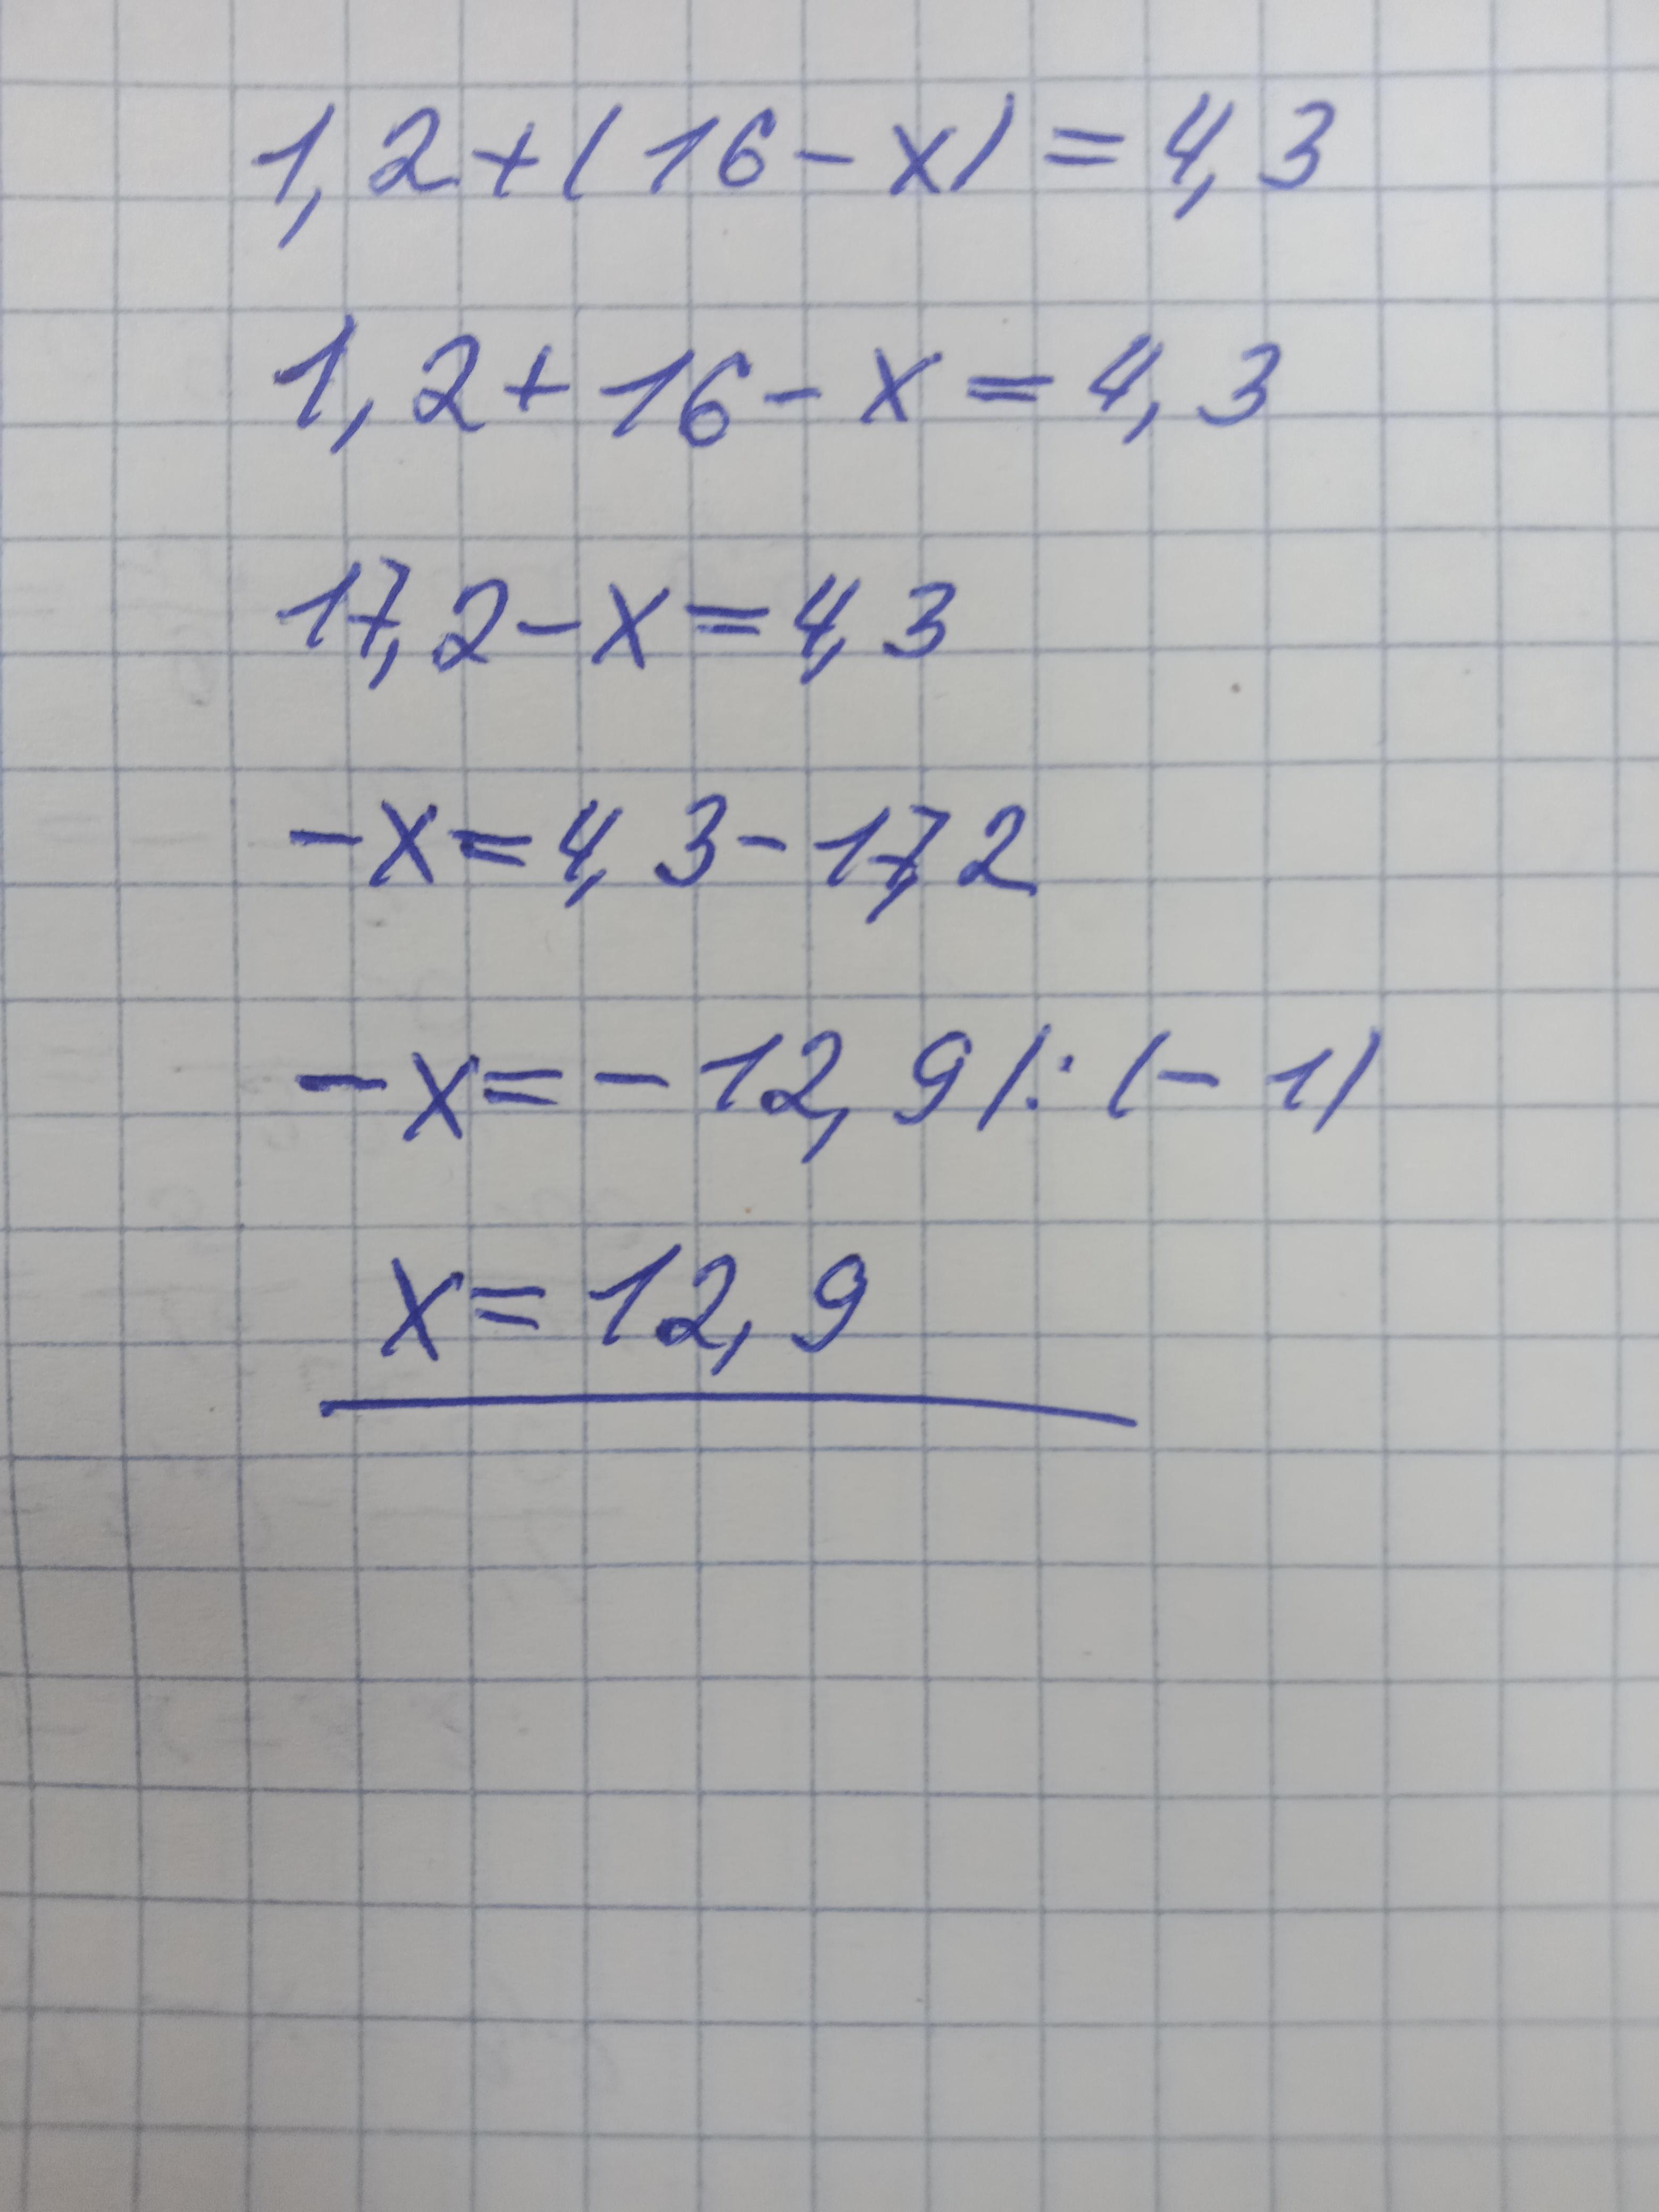 1,2+(16-x)=4,3
1,2+16-x=4,3
17,2-x=4,3
-x=4,3-17,2
-x=-12,9/:(-1)
x=12,9